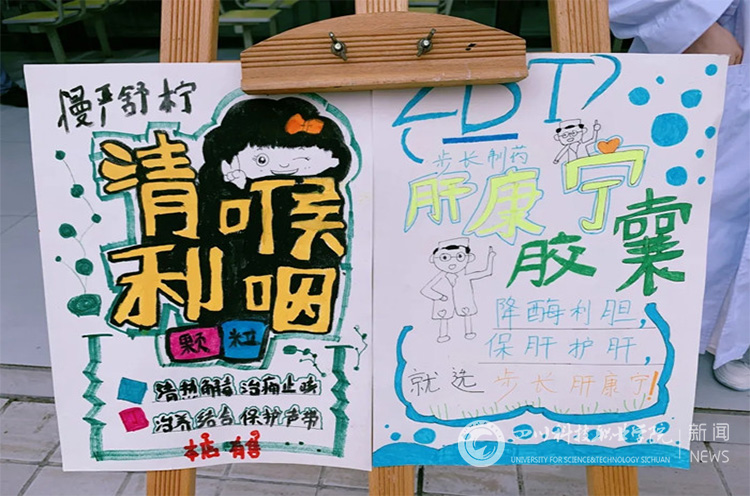 慢严舒柠
清喉
利咽
颗粒
清热解毒 治痛止咳
治养结合 保护声带
本店有售
步长制药
肝康宁
胶囊
降酶利胆,
保肝护肝,
就选 步长肝康宁!
四川科技职业学院
UNIVERSITY FOR SCIENCE&TECHNOLOGY SICHUAN
新闻
NEWS